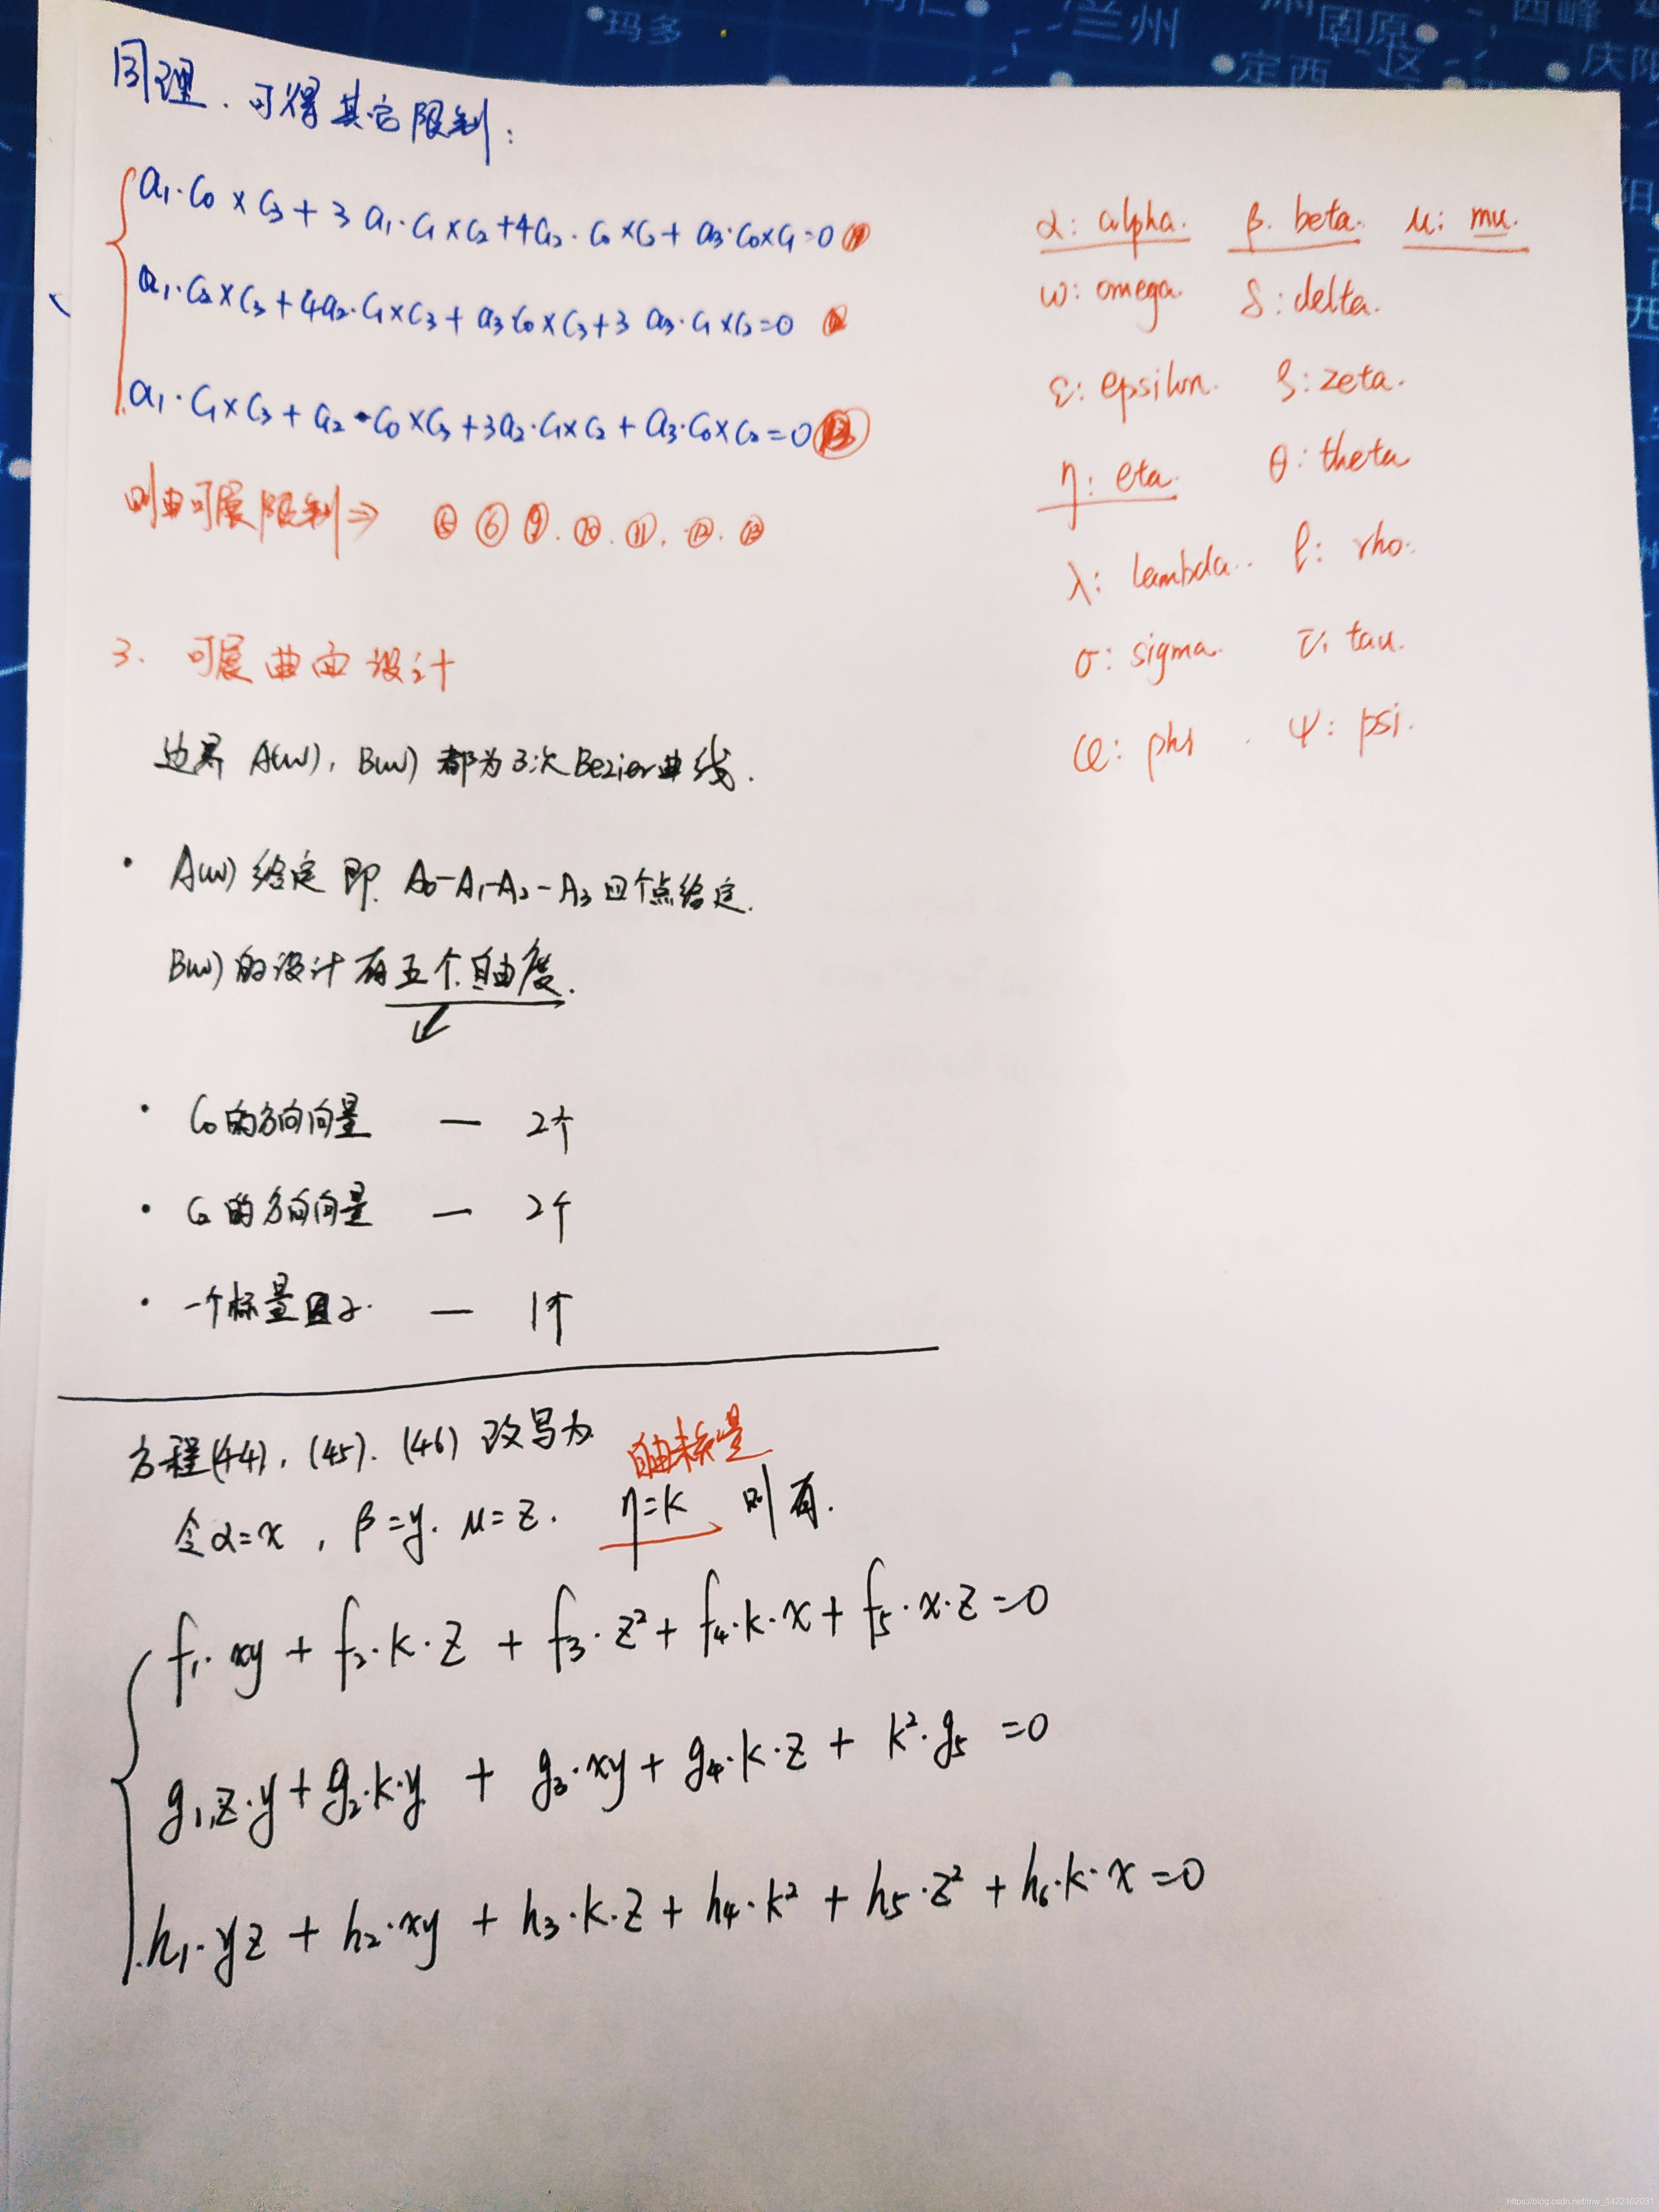 玛多
兰州
固原
西峰
定西
区
庆阳
同理、可得其它限制:
a₁·c₀×c₃+3a₁·c₁×c₂+4a₂·c₀×c₂+a₃·c₀×c₁=0 ⑪
a₁·c₂×c₃+4a₂·c₁×c₃+a₃·c₀×c₃+3a₃·c₁×c₂=0 ⑫
a₁·c₁×c₃+a₂·c₀×c₃+3a₂·c₁×c₂+a₃·c₀×c₂=0 ⑬
则由可展限制⇒ ⑤ ⑥ ⑨. ⑩. ⑪. ⑫. ⑬
α: alpha. β. beta. μ: mu.
ω: omega. δ: delta.
ε: epsilon. ζ: zeta.
η: eta. θ: theta
λ: lambda.. ρ: rho.
σ: sigma. τ: tau.
φ: phi. ψ: psi.
3. 可展曲面设计
边界 A(w), B(w) 都为3次Bezier曲线.
· A(w) 给定 即 A₀-A₁-A₂-A₃ 四个点给定.
B(w) 的设计有五个自由度.
· C₀的方向向量 — 2个
· C₂的方向向量 — 2个
· 一个标量因子. — 1个
方程(44), (45). (46) 改写为
自由标量
令α=x, β=y. μ=z. η=k 则有.
f₁·xy + f₂·k·z + f₃·z² + f₄·k·x + f₅·x·z =0
g₁,z·y + g₂·k·y + g₃·xy + g₄·k·z + k²·g₅ =0
h₁·yz + h₂·xy + h₃·k·z + h₄·k² + h₅·z² + h₆·k·x =0
https://blog.csdn.net/mw_1422102031